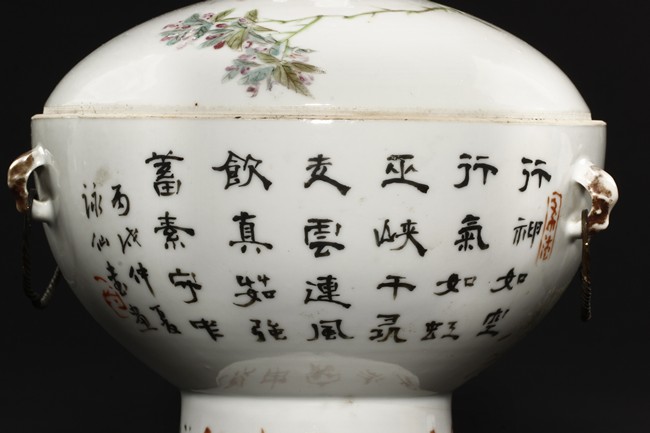 行神如空
行氣如虹
巫峽千尋
走雲連風
飲真茹強
蓄素守中
丙戌仲夏
詠仙